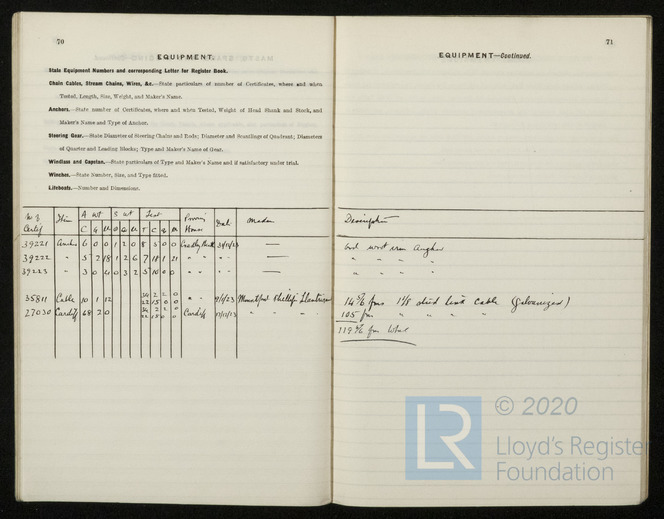 70
EQUIPMENT.
State Equipment Numbers and corresponding Letter for Register Book.
Chain Cables, Stream Chains, Wires, &c.—State particulars of number of Certificates, where and when
Tested, Length, Size, Weight, and Maker's Name.
Anchors.—State number of Certificates, where and when Tested, Weight of Head Shank and Stock, and
Maker's Name and Type of Anchor.
Steering Gear.—State Diameter of Steering Chains and Rods; Diameter and Scantlings of Quadrant; Diameters
of Quarter and Leading Blocks; Type and Maker's Name of Gear.
Windlass and Capstan.—State particulars of Type and Maker's Name and if satisfactory under trial.
Winches.—State Number, Size, and Type fitted.
Lifeboats.—Number and Dimensions.
A wt S wt Test
No of Certif Item C Q T C Q Proving House Date
39221 6 0 0 1 2 0 8 5 0 0
39222 " 5 2 18 1 2 6 7 18 1 21 " "
39223 " 3 0 0 3 2 5 10 0 0 " "
34 2 2 0
35811 Cable 10 1 12 22 15 0 0 " "
34 2 2 0
27030 Cardiff 68 2 0 22 15 0 0 Cardiff " " "
71
EQUIPMENT—Continued.
Description
" " " "
" " " "
14 5/6 fms 1 1/8 stud link cable (Galvanized)
105 fm " " " "
119 5/6 fm total
© 2020
LR
Lloyd's Register
Foundation